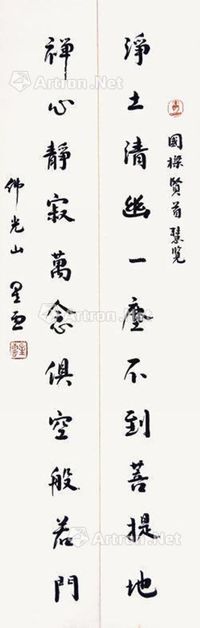 國樑賢首慧覽
淨土清幽一塵不到菩提地
禪心靜寂萬念俱空般若門
佛光山 星雲
Artron.Net
Artron.Net
Artron.Net
Artron.Net